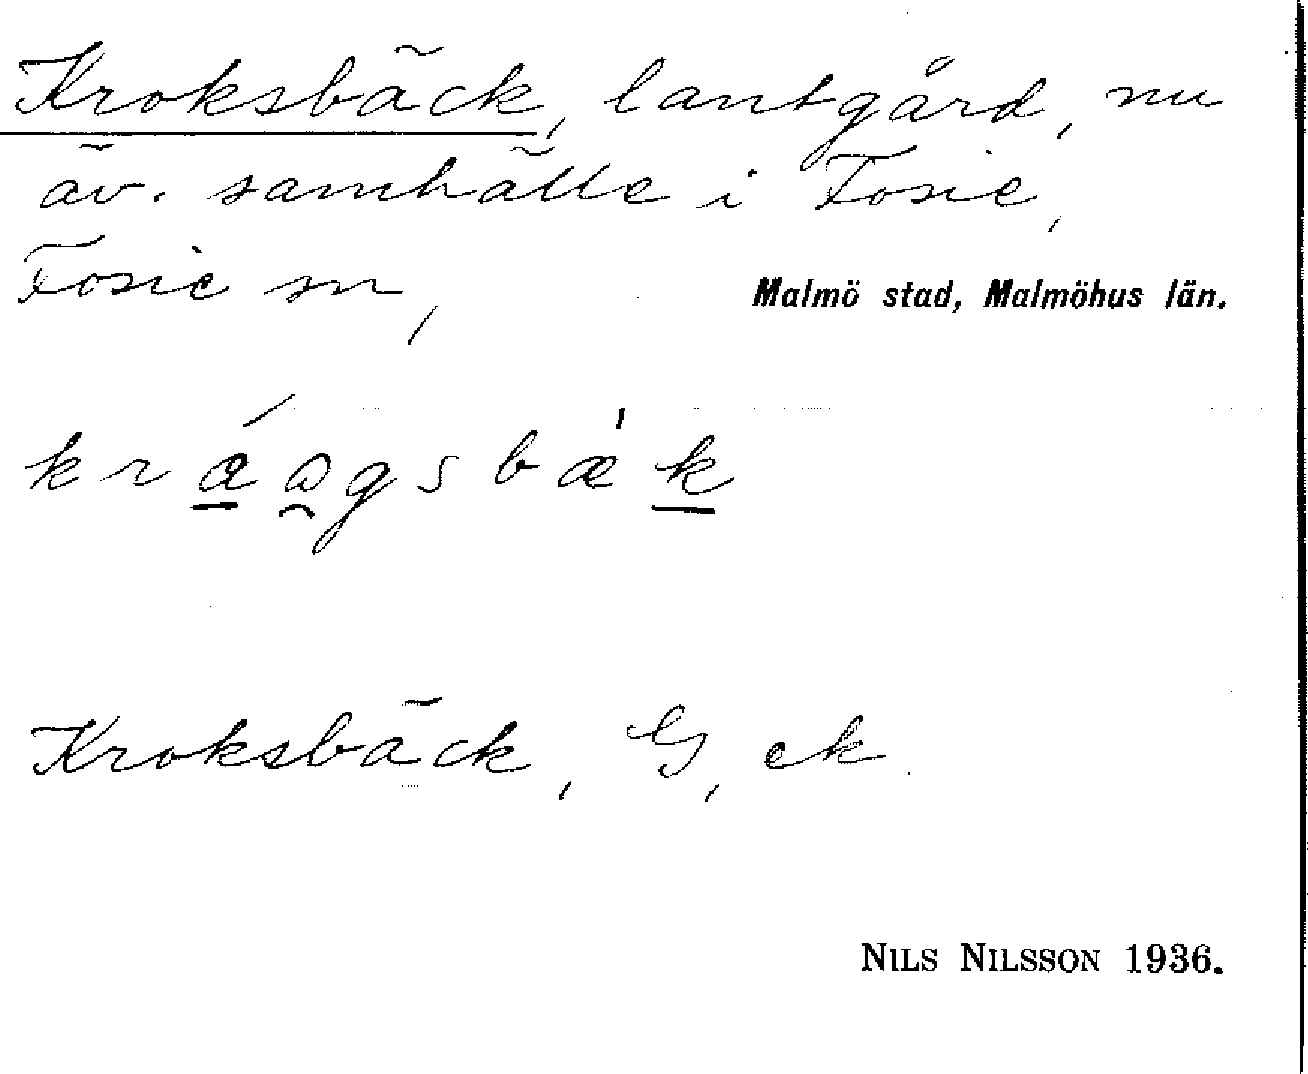 Kroksbäck, lantgård, nu
äv. samhälle i Fosie,
Fosie sn, Malmö stad, Malmöhus län.
kráogsbæ̍k
Kroksbäck, G, ek
NILS NILSSON 1936.